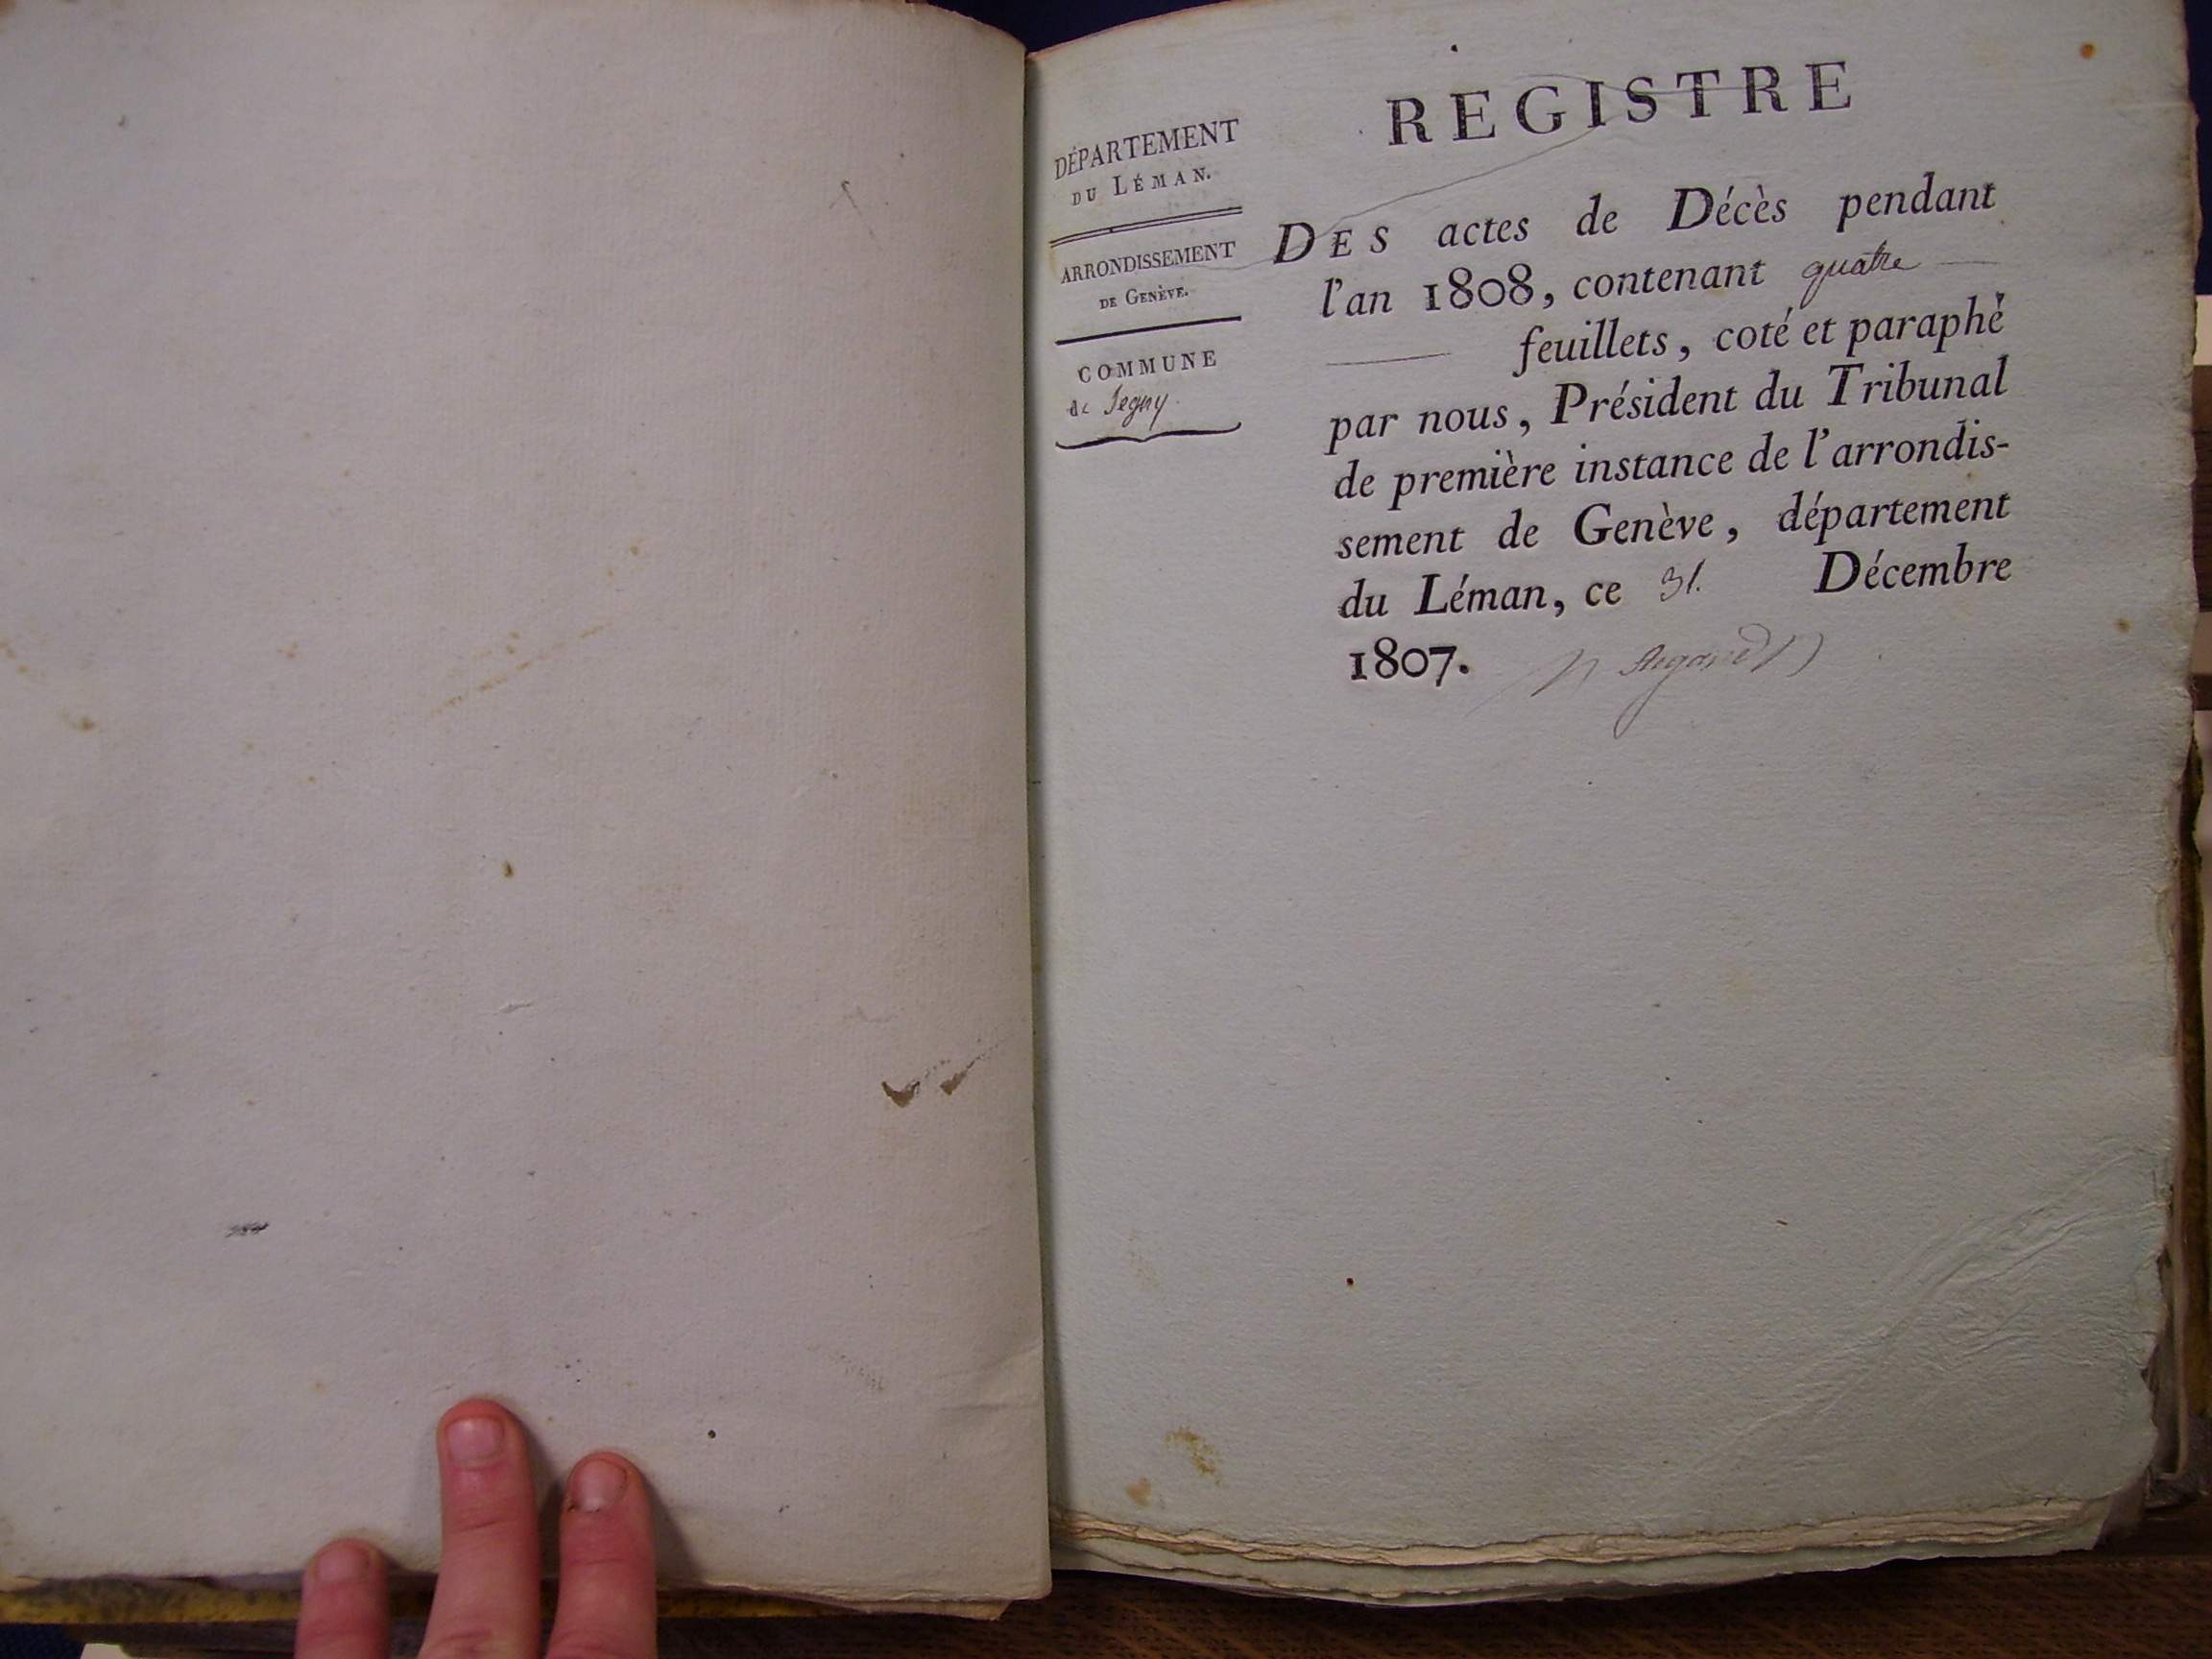 DÉPARTEMENT
DU LÉMAN.
ARRONDISSEMENT
DE GENÈVE.
COMMUNE
de Segny
REGISTRE
DES actes de Décès pendant
l'an 1808, contenant quatre
feuillets, coté et paraphé
par nous, Président du Tribunal
de première instance de l'arrondis-
sement de Genève, département
du Léman, ce 31. Décembre
1807.